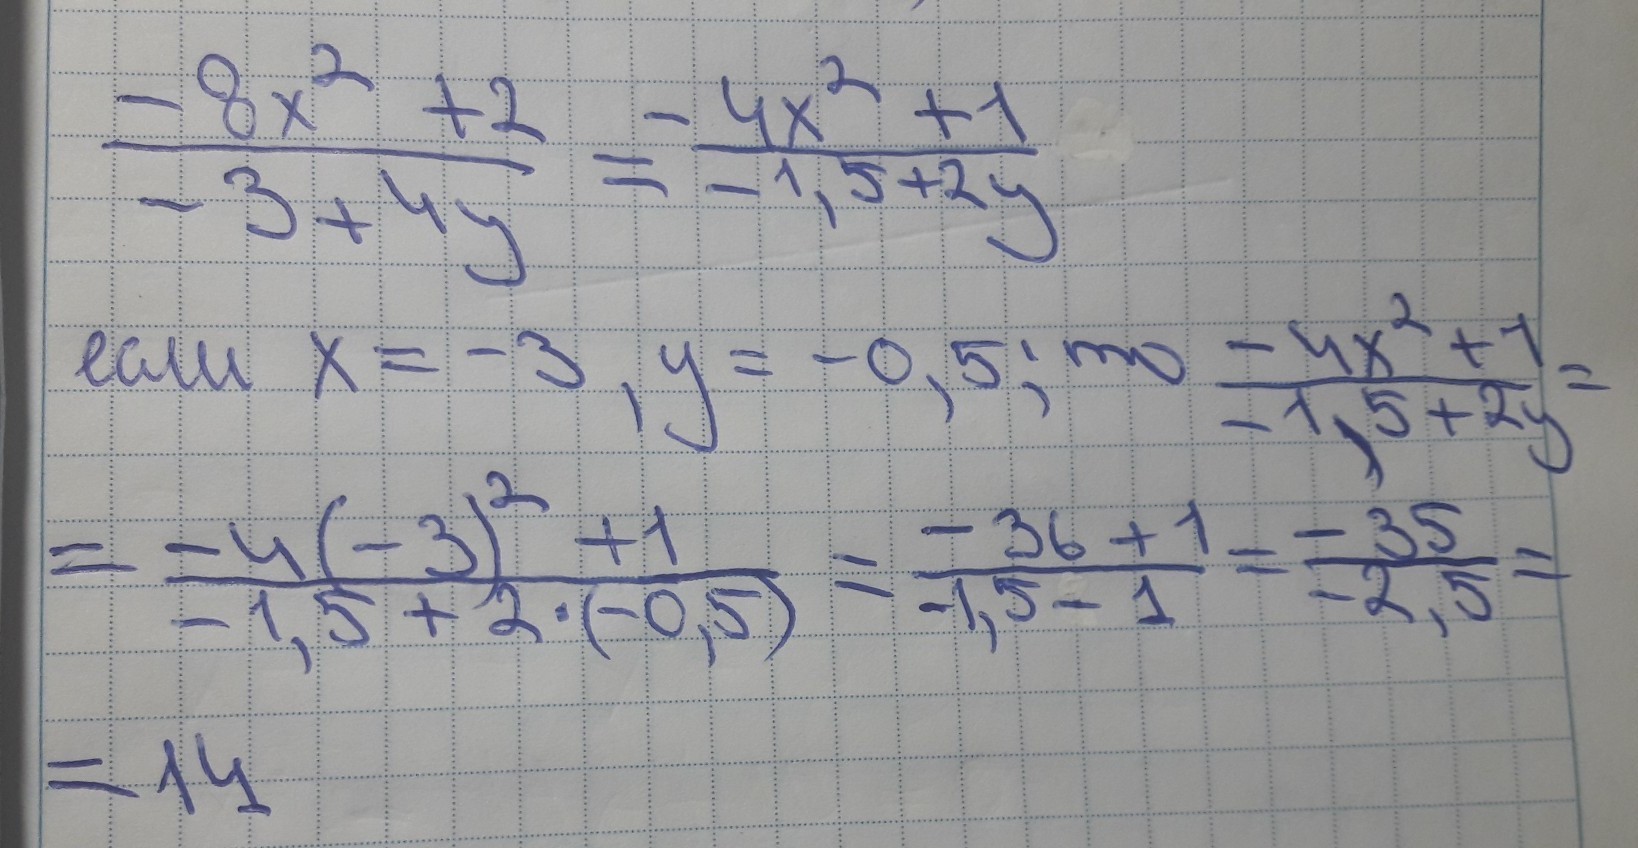 (-8x² + 2)/(-3 + 4y) = (-4x² + 1)/(-1,5 + 2y)
если x = -3, y = -0,5; то (-4x² + 1)/(-1,5 + 2y) =
= (-4(-3)² + 1)/(-1,5 + 2·(-0,5)) = (-36 + 1)/(-1,5 - 1) = (-35)/(-2,5) =
= 14